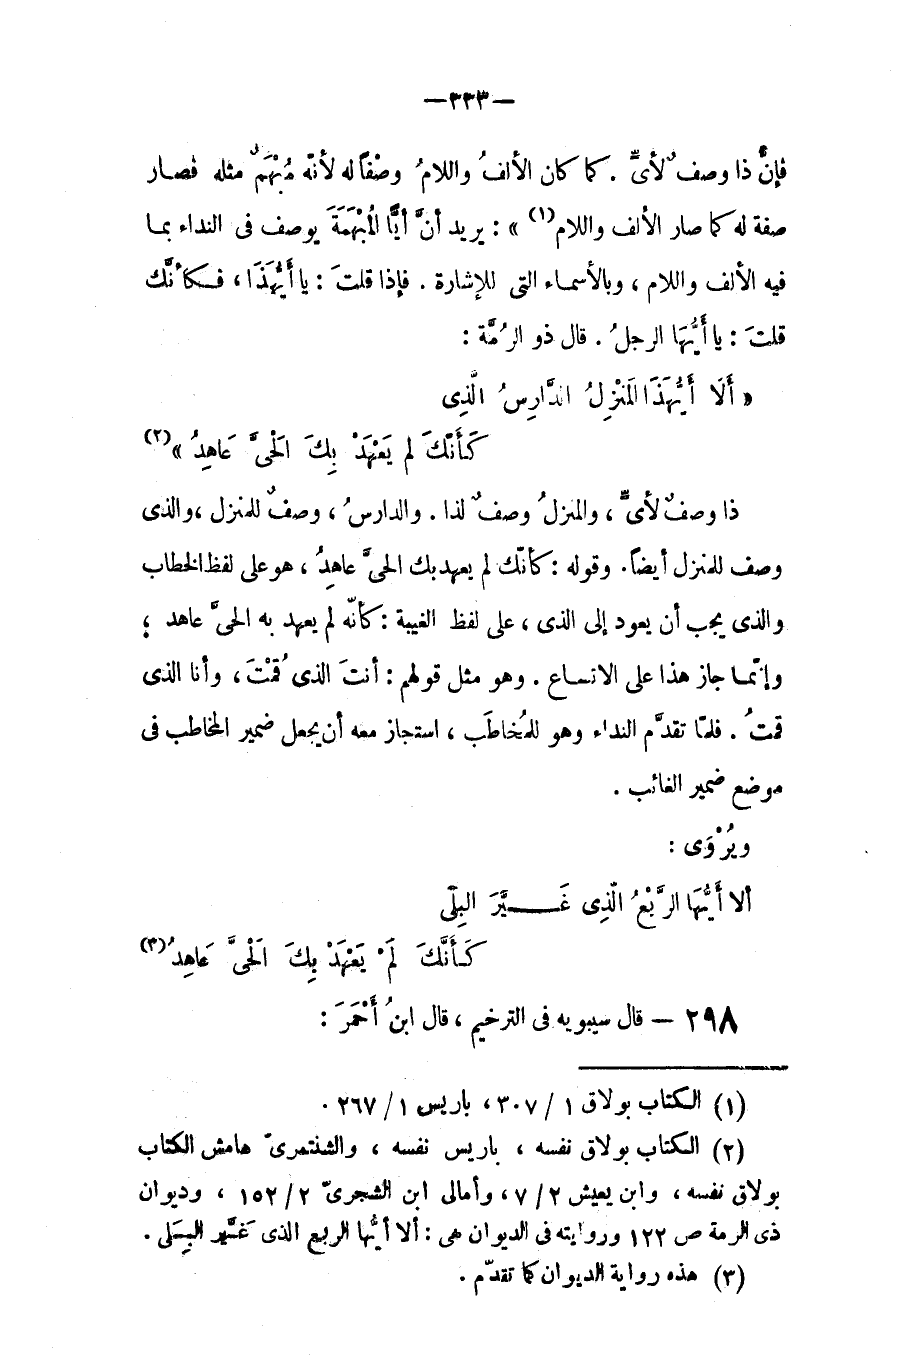 —٣٣٣—
فإنَّ ذا وصفٌ لأىٍّ . كما كان الألفُ واللامُ وصْفاً له لأنّه مُبْهَمٌ مثله فصار
صفة له كما صار الألف واللام(١) » : يريد أنَّ أيًّا المُبْهَمَةَ يوصف فى النداء بما
فيه الألف واللام ، وبالأسماء التى للإشارة . فإذا قلتَ : يا أَيُّهَذَا ، فكأنَّك
قلتَ : يا أَيُّهَا الرجلُ . قال ذو الرُمَّة :
« أَلَا أَيُّهَذَا المَنْزِلُ الدَّارِسُ الَّذِى
كَأَنَّكَ لم يَعْهَدْ بِكَ الَحْىَّ عَاهِدُ »(٢)
ذا وصفٌ لأىٍّ ، والمنزلُ وصفٌ لذا . والدارسُ ، وصفٌ للمنزل ،والذى
وصف للمنزل أيضاً. وقوله : كأنّك لم يعهد بك الحىَّ عاهدُ ، هو على لفظ الخطاب
والذى يجب أن يعود إلى الذى ، على لفظ الغيبة : كأنّه لم يعهد به الحىَّ عاهد ؛
وإنّما جاز هذا على الاتساع . وهو مثل قولهم : أنتَ الذى قُمْتَ ، وأنا الذى
قمتُ . فلمّا تقدَّم النداء وهو للمُخاطَب ، استجاز معه أن يجعل ضمير المخاطب فى
موضع ضمير الغائب .
ويُرْوَى :
ألا أَيُّهَا الرَّبْعُ الَّذِى غَيَّرَ البِلَى
كَأَنَّكَ لَمْ يَعْهَدْ بِكَ الَحْىَّ عَاهِدُ(٣)
٢٩٨ — قال سيبويه فى الترخيم ، قال ابنُ أَحْمَرَ :
(١) الكتاب بولاق ١ / ٣٠٧ ، باريس ١ / ٢٦٧ .
(٢) الكتاب بولاق نفسه ، باريس نفسه ، والشنتمرىّ هامش الكتاب
بولاق نفسه ، وابن يعيش ٢ / ٧ ، وأمالى ابن الشجرىّ ٢ / ١٥٢ ، وديوان
ذى الرمة ص ١٢٢ وروايته فى الديوان هى : ألا أيُّها الربع الذى غَيَّر البِلَى .
(٣) هذه رواية الديوان كما تقدّم .